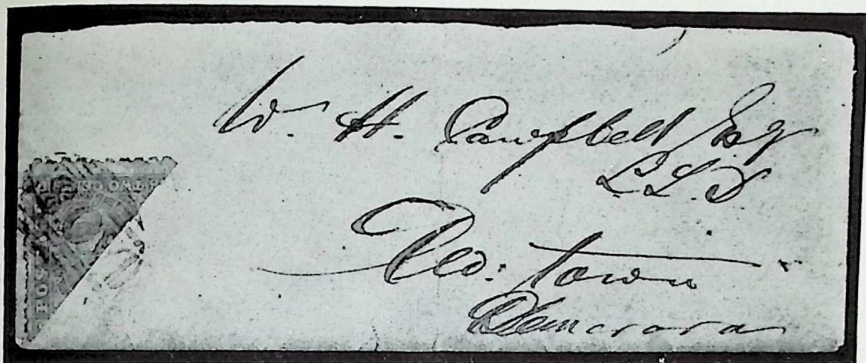 W. H. Campbell Esq
L.L.D.
Geo: town
Demerara